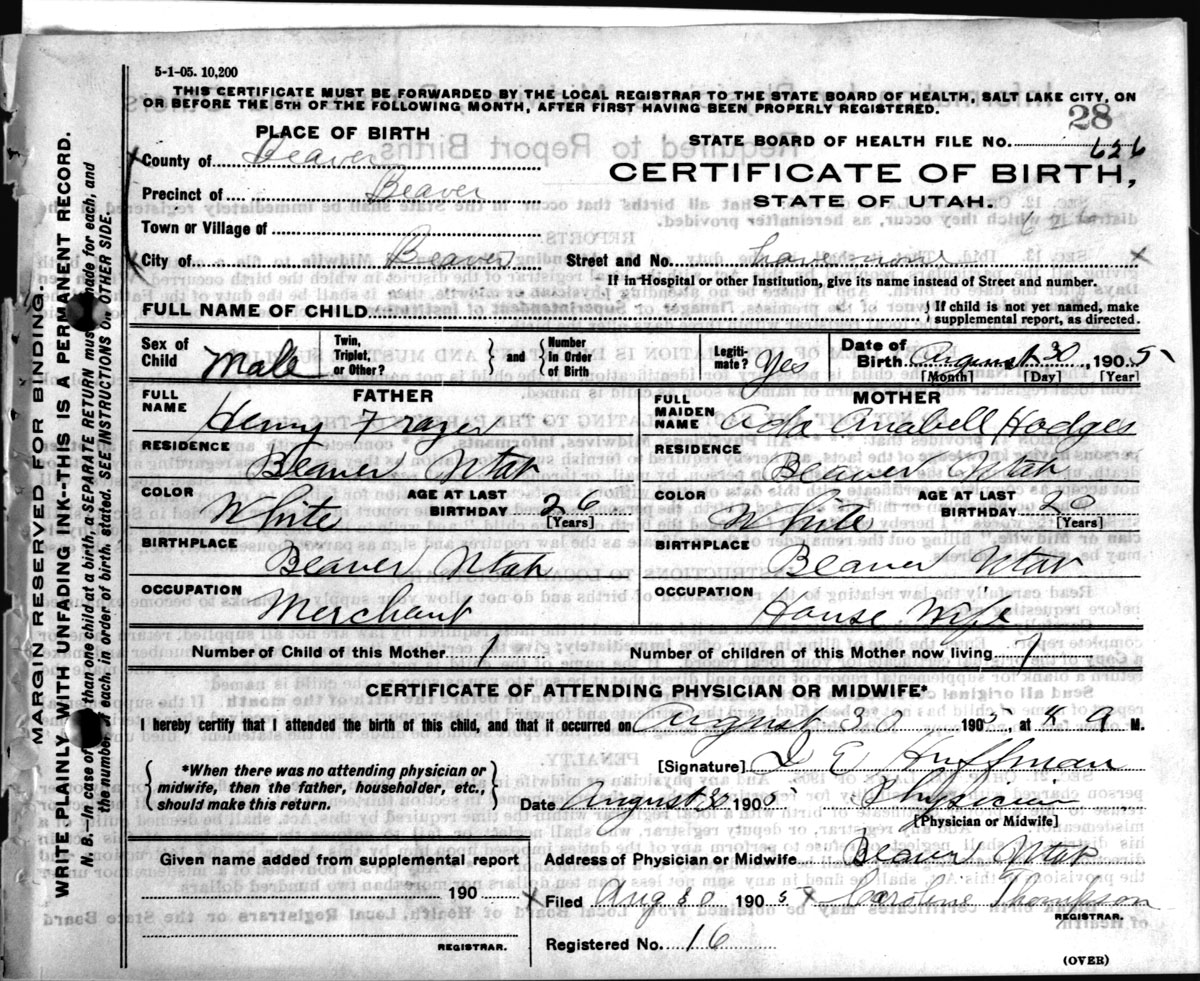 5-1-05. 10,200
THIS CERTIFICATE MUST BE FORWARDED BY THE LOCAL REGISTRAR TO THE STATE BOARD OF HEALTH, SALT LAKE CITY, ON
OR BEFORE THE 5TH OF THE FOLLOWING MONTH, AFTER FIRST HAVING BEEN PROPERLY REGISTERED.
28
PLACE OF BIRTH
STATE BOARD OF HEALTH FILE NO. 626
County of Beaver
CERTIFICATE OF BIRTH,
Precinct of Beaver
STATE OF UTAH.
626
Town or Village of
City of Beaver
Street and No. have none
If in Hospital or other Institution, give its name instead of Street and number.
FULL NAME OF CHILD
{ If child is not yet named, make
supplemental report, as directed.
Sex of Child Male
Twin, Triplet, or Other? } and { Number In Order of Birth
Legitimate? Yes
Date of Birth August 30 1905
[Month] [Day] [Year]
FATHER
FULL NAME Henry Frazer
MOTHER
FULL MAIDEN NAME Ada Anabell Hodges
RESIDENCE Beaver Utah
RESIDENCE Beaver Utah
COLOR White AGE AT LAST BIRTHDAY 26 [Years]
COLOR White AGE AT LAST BIRTHDAY 20 [Years]
BIRTHPLACE Beaver Utah
BIRTHPLACE Beaver Utah
OCCUPATION Merchant
OCCUPATION House Wife
Number of Child of this Mother 1
Number of children of this Mother now living 1
CERTIFICATE OF ATTENDING PHYSICIAN OR MIDWIFE*
I hereby certify that I attended the birth of this child, and that it occurred on August 30 1905, at 9 M.
{ *When there was no attending physician or
midwife, then the father, householder, etc.,
should make this return. }
[Signature] Huffman
Date August 30 1905 Physician
[Physician or Midwife]
Given name added from supplemental report
190
REGISTRAR.
Address of Physician or Midwife Beaver Utah
Filed Aug 30 1905 Caroline Thompson
REGISTRAR.
Registered No. 16
(OVER)
MARGIN RESERVED FOR BINDING
WRITE PLAINLY WITH UNFADING INK--THIS IS A PERMANENT RECORD.
N. B.—In case of than one child at a birth, a SEPARATE RETURN must made for each, and
the number each, in order of birth, stated. SEE INSTRUCTIONS ON OTHER SIDE.